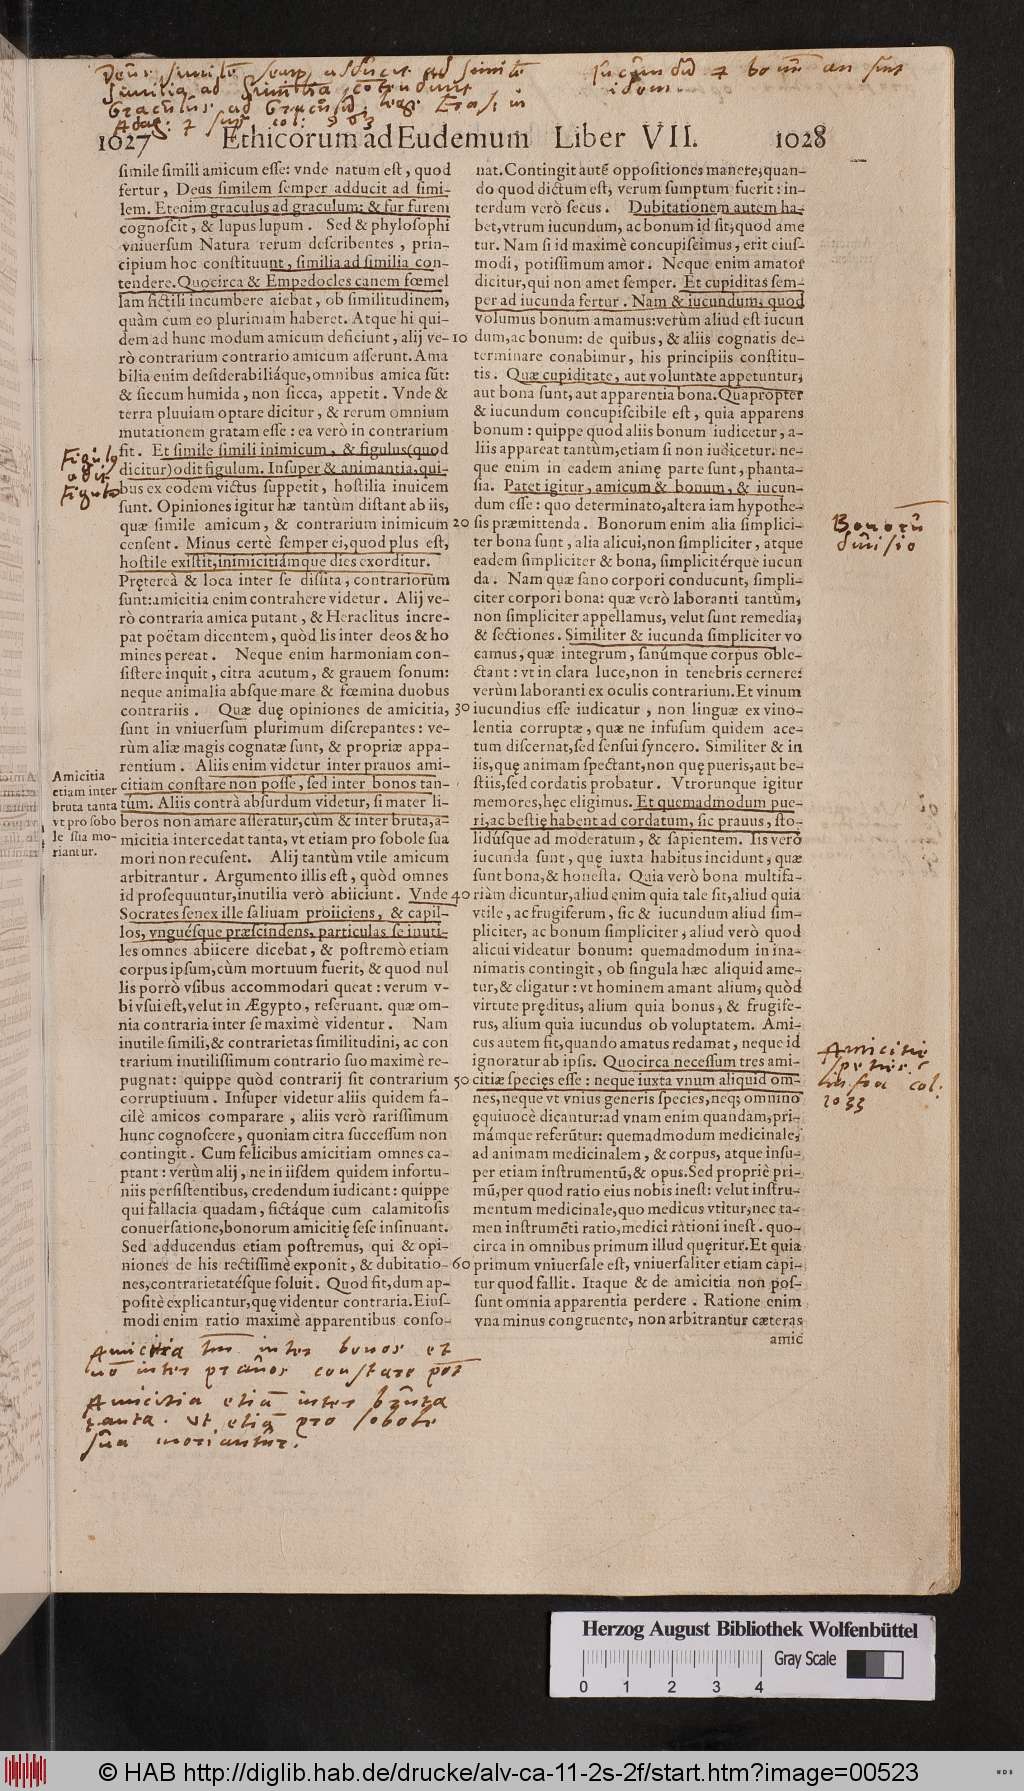 Deus simile semp adducit ad simile
Similia ad Similia cotendunt
Graculus ad Graculu, vide Eras. in
Adag: & sup col: 983
Jucundu & bonu an sint
idem
1027 Ethicorum ad Eudemum Liber VII. 1028
simile simili amicum esse: vnde natum est, quod
fertur, Deus similem semper adducit ad simi-
lem. Etenim graculus ad graculum: & fur furem
cognoscit, & lupus lupum. Sed & phylosophi
vniuersum Natura rerum describentes, prin-
cipium hoc constituunt, similia ad similia con-
tendere. Quocirca & Empedocles canem fœmel
lam fictili incumbere aiebat, ob similitudinem,
quàm cum eo plurimam haberet. Atque hi qui-
dem ad hunc modum amicum definiunt, alij ve- 10
rò contrarium contrario amicum asserunt. Ama
bilia enim desiderabiliáque, omnibus amica sūt:
& siccum humida, non sicca, appetit. Vnde &
terra pluuiam optare dicitur, & rerum omnium
mutationem gratam esse: ea verò in contrarium
fit. Et simile simili inimicum, & figulus (quod
dicitur) odit figulum. Insuper & animantia, qui-
bus ex eodem victus suppetit, hostilia inuicem
sunt. Opiniones igitur hæ tantùm distant ab iis,
quæ simile amicum, & contrarium inimicum 20
censent. Minus certè semper ei, quod plus est,
hostile existit, inimicitiámque dies exorditur.
Prętereà & loca inter se dissita, contrariorum
sunt: amicitia enim contrahere videtur. Alij ve-
rò contraria amica putant, & Heraclitus incre-
pat poëtam dicentem, quòd lis inter deos & ho
mines pereat. Neque enim harmoniam con-
sistere inquit, citra acutum, & grauem sonum:
neque animalia absque mare & fœmina duobus
contrariis. Quæ duę opiniones de amicitia, 30
sunt in vniuersum plurimum discrepantes: ve-
rùm aliæ magis cognatæ sunt, & propriæ appa-
rentium. Aliis enim videtur inter prauos ami-
citiam constare non posse, sed inter bonos tan-
túm. Aliis contrà absurdum videtur, si mater li-
beros non amare asseratur, cùm & inter bruta, a-
micitia intercedat tanta, vt etiam pro sobole sua
mori non recusent. Alij tantùm vtile amicum
arbitrantur. Argumento illis est, quòd omnes
id prosequuntur, inutilia verò abiiciunt. Vnde 40
Socrates senex ille saliuam proiiciens, & capil-
los, vnguésque præscindens, particulas se inuti-
les omnes abiicere dicebat, & postremò etiam
corpus ipsum, cùm mortuum fuerit, & quod nul
lis porrò vsibus accommodari queat: verum v-
bi vsui est, velut in Ægypto, reseruant. quæ om-
nia contraria inter se maximè videntur. Nam
inutile simili, & contrarietas similitudini, ac con
trarium inutilissimum contrario suo maximè re-
pugnat: quippe quòd contrarij sit contrarium 50
corruptiuum. Insuper videtur aliis quidem fa-
cilè amicos comparare, aliis verò rarissimum
hunc cognoscere, quoniam citra successum non
contingit. Cum felicibus amicitiam omnes ca-
ptant: verùm alij, ne in iisdem quidem infortu-
niis persistentibus, credendum iudicant: quippe
qui fallacia quadam, fictáque cum calamitosis
conuersatione, bonorum amicitię sese insinuant.
Sed adducendus etiam postremus, qui & opi-
niones de his rectissimè exponit, & dubitatio- 60
nes, contrarietatésque soluit. Quod fit, dum ap-
positè explicantur, quę videntur contraria. Eius-
modi enim ratio maximè apparentibus conso-
Figulus
odit
Figulu
Amicitia
etiam inter
bruta tanta
vt pro sobo
le sua mo-
riantur.
Amicitia tm inter bonos et
no inter prauos constare pot
Amicitia etia inter bruta
tanta. vt etia pro sobole
sua moriantur.
nat. Contingit autē oppositiones manere, quan-
do quod dictum est, verum sumptum fuerit: in-
terdum verò secus. Dubitationem autem ha-
bet, vtrum iucundum, ac bonum id sit, quod ame
tur. Nam si id maximè concupiscimus, erit eius-
modi, potissimum amor. Neque enim amator
dicitur, qui non amet semper. Et cupiditas sem-
per ad iucunda fertur. Nam & iucundum, quod
volumus bonum amamus: verùm aliud est iucun
dum, ac bonum: de quibus, & aliis cognatis de-
terminare conabimur, his principiis constitu-
tis. Quæ cupiditate, aut voluntate appetuntur,
aut bona sunt, aut apparentia bona. Quapropter
& iucundum concupiscibile est, quia apparens
bonum: quippe quod aliis bonum iudicetur, a-
liis appareat tantùm, etiam si non iudicetur. ne-
que enim in eadem animę parte sunt, phanta-
sia. Patet igitur, amicum & bonum, & iucun-
dum esse: quo determinato, altera iam hypothe-
sis præmittenda. Bonorum enim alia simplici-
ter bona sunt, alia alicui, non simpliciter, atque
eadem simpliciter & bona, simplicitérque iucun
da. Nam quæ sano corpori conducunt, simpli-
citer corpori bona: quæ verò laboranti tantùm,
non simpliciter appellamus, velut sunt remedia,
& sectiones. Similiter & iucunda simpliciter vo
camus, quæ integrum, sanúmque corpus oble-
ctant: vt in clara luce, non in tenebris cernere:
verùm laboranti ex oculis contrarium. Et vinum
iucundius esse iudicatur, non linguæ ex vino-
lentia corruptæ, quæ ne infusum quidem ace-
tum discernat, sed sensui syncero. Similiter & in
iis, quę animam spectant, non quę pueris, aut be-
stiis, sed cordatis probatur. Vtrorunque igitur
memores, hęc eligimus. Et quemadmodum pue-
ri, ac bestię habent ad cordatum, sic prauus, sto-
lidúsque ad moderatum, & sapientem. Iis verò
iucunda sunt, quę iuxta habitus incidunt, quæ
sunt bona, & honesta. Quia verò bona multifa-
riàm dicuntur, aliud enim quia tale sit, aliud quia
vtile, ac frugiferum, sic & iucundum aliud sim-
pliciter, ac bonum simpliciter, aliud verò quod
alicui videatur bonum: quemadmodum in ina-
nimatis contingit, ob singula hæc aliquid ame-
tur, & eligatur: vt hominem amant alium, quòd
virtute pręditus, alium quia bonus, & frugife-
rus, alium quia iucundus ob voluptatem. Ami-
cus autem fit, quando amatus redamat, neque id
ignoratur ab ipsis. Quocirca necessum tres ami-
citiæ specięs esse: neque iuxta vnum aliquid om-
nes, neque vt vnius generis species, neq; omnino
ęquiuocè dicantur: ad vnam enim quandam, pri-
mámque referūtur: quemadmodum medicinale,
ad animam medicinalem, & corpus, atque insu-
per etiam instrumentū, & opus. Sed propriè pri-
mū, per quod ratio eius nobis inest: velut instru-
mentum medicinale, quo medicus vtitur, nec ta-
men instrumēti ratio, medici rationi inest. quo-
circa in omnibus primum illud quęritur. Et quia
primum vniuersale est, vniuersaliter etiam capi-
tur quod fallit. Itaque & de amicitia non pos-
sunt omnia apparentia perdere. Ratione enim
vna minus congruente, non arbitrantur cæteras
amic
Bonoru
diuisio
Amicitie
species
col:
1033
Herzog August Bibliothek Wolfenbüttel
Gray Scale
0 1 2 3 4
© HAB http://diglib.hab.de/drucke/alv-ca-11-2s-2f/start.htm?image=00523